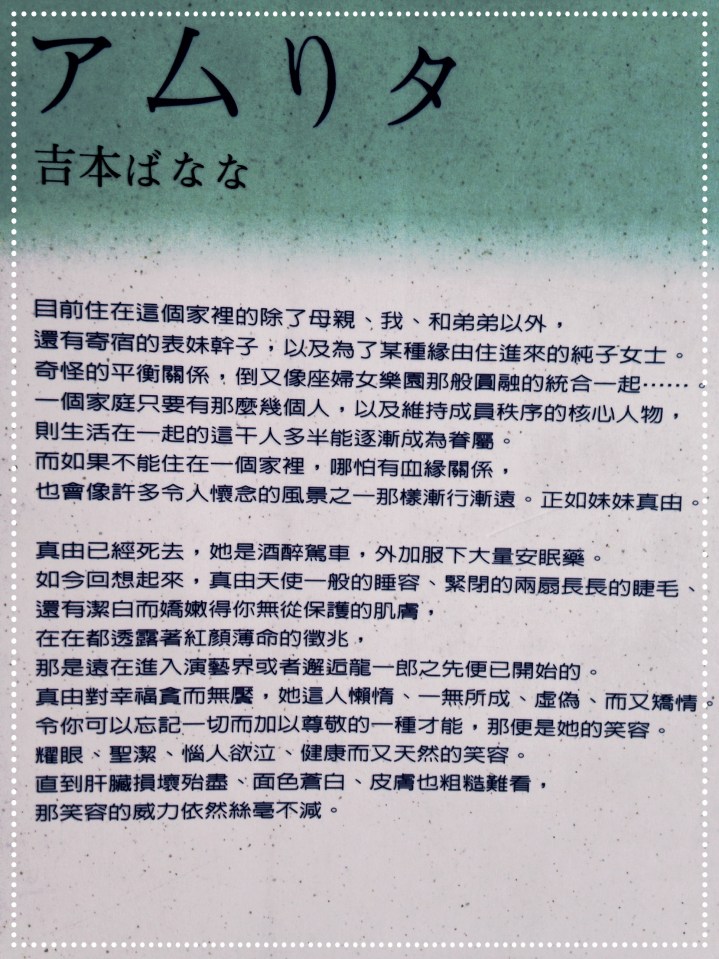 アムリタ
吉本ばなな
目前住在這個家裡的除了母親、我、和弟弟以外，
還有寄宿的表妹幹子，以及為了某種緣由住進來的純子女士。
奇怪的平衡關係，倒又像座婦女樂園那般圓融的統合一起……。
一個家庭只要有那麼幾個人，以及維持成員秩序的核心人物，
則生活在一起的這干人多半能逐漸成為眷屬。
而如果不能住在一個家裡，哪怕有血緣關係，
也會像許多令人懷念的風景之一那樣漸行漸遠。正如妹妹真由。
真由已經死去，她是酒醉駕車，外加服下大量安眠藥。
如今回想起來，真由天使一般的睡容、緊閉的兩扇長長的睫毛、
還有潔白而嬌嫩得你無從保護的肌膚，
在在都透露著紅顏薄命的徵兆，
那是遠在進入演藝界或者邂逅龍一郎之先便已開始的。
真由對幸福貪而無饜，她這人懶惰、一無所成、虛偽、而又矯情。
令你可以忘記一切而加以尊敬的一種才能，那便是她的笑容。
耀眼、聖潔、惱人欲泣、健康而又天然的笑容。
直到肝臟損壞殆盡、面色蒼白、皮膚也粗糙難看，
那笑容的威力依然絲毫不減。